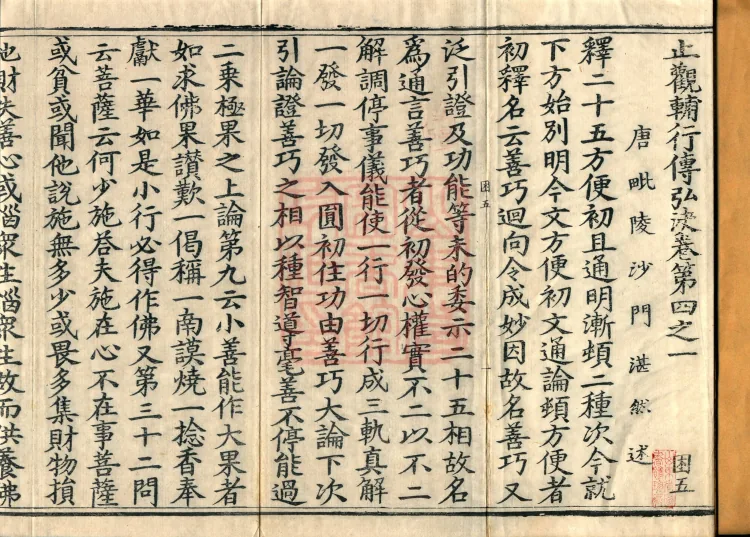 止觀輔行傳弘决卷第四之一
困五
唐毗陵沙門湛然述
釋二十五方便初且通明漸頓二種次今就
下方始別明今文方便初文通論頓方便者
初釋名云善巧迴向令成妙因故名善巧又
困五
泛引證及功能等未的委示二十五相故名
為通言善巧者從初發心權實不二以不二
解調停事儀能使一行一切行成三軌真解
一發一切發入圓初住功由善巧大論下次
引論證善巧之相以種智導毫善不停能過
二乘極果之上論第九云小善能作大果者
如求佛果讚歎一偈稱一南謨燒一捻香奉
獻一華如是小行必得作佛又第三十二問
云菩薩云何少施荅夫施在心不在事菩薩
或貧或聞他說施無多少或畏多集財物損
他財失善心或惱眾生惱眾生故而供養佛